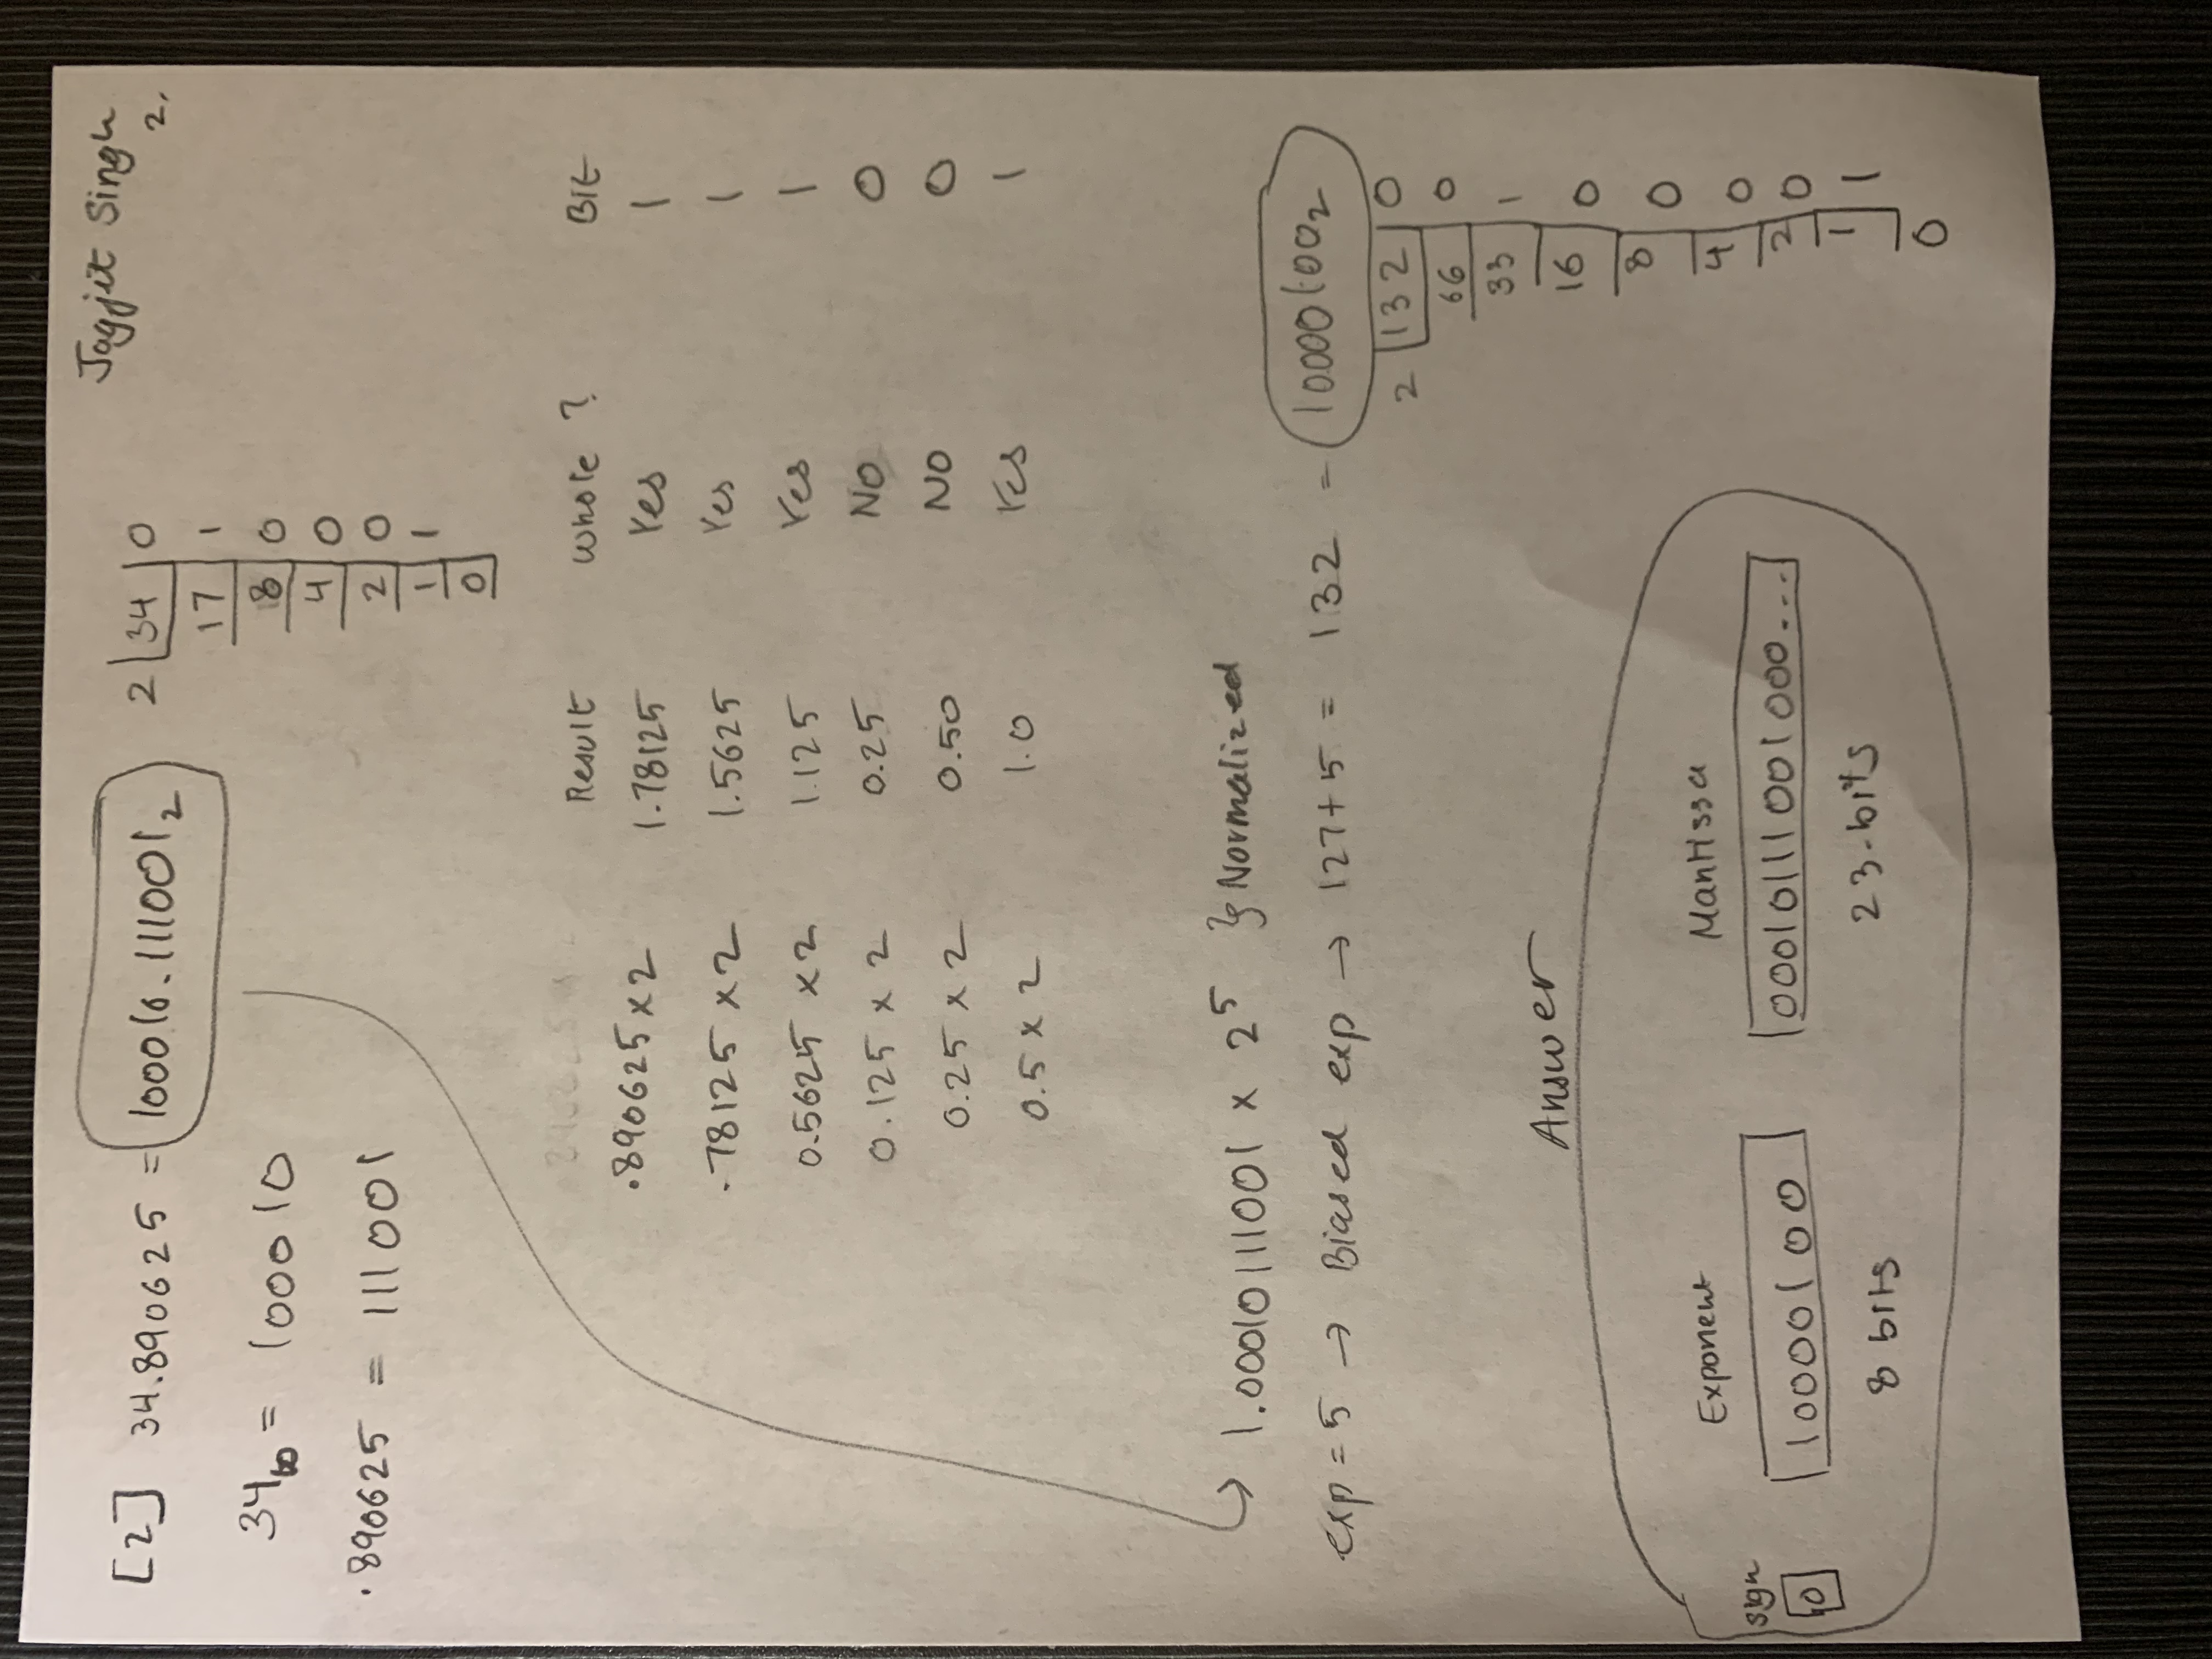 Jagjit Singh
2.
[2] 34.890625 = 100010.111001₂
34₁₀ = 100010
.890625 = 111001
2 34 0
17 1
8 0
4 0
2 0
1 1
0
Result Whole ? Bit
.890625 x 2 1.78125 Yes 1
.78125 x 2 1.5625 Yes 1
0.5625 x 2 1.125 Yes 1
0.125 x 2 0.25 NO 0
0.25 x 2 0.50 NO 0
0.5 x 2 1.0 Yes 1
1.00010111001 x 2⁵ } Normalized
exp = 5 → Biased exp → 127+5 = 132 = 10000100₂
2 132 0
66 0
33 1
16 0
8 0
4 0
2 0
1 1
0
Answer
sign Exponent Mantissa
0 10000100 00010111001000...
8 bits 23-bits